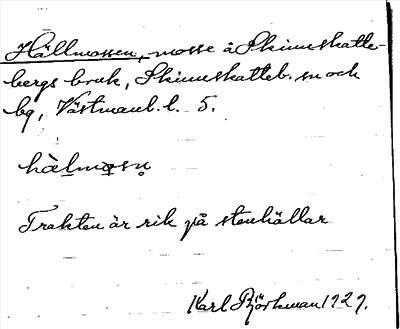 Hällmossen, mosse å Skinnskatte-
bergs bruk, Skinnskatteb. sn och
bg, Västmanl. l. 5.
hàlmǫsn̥
Trakten är rik på stenhällar
Karl Björkman 1929.